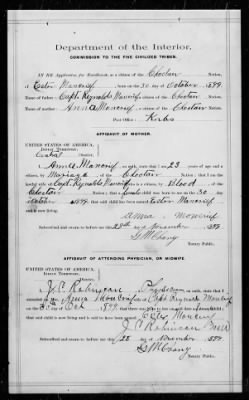 Department of the Interior,
COMMISSION TO THE FIVE CIVILIZED TRIBES.
IN RE Application for Enrollment, as a citizen of the Choctaw Nation,
of Ester Moncrief, born on the 30 day of October, 1899
Name of father: Capt. Reynalds Moncrief a citizen of the Choctaw Nation.
Name of mother: Anna Moncrief a citizen of the Choctaw Nation.
Post Office:
AFFIDAVIT OF MOTHER.
UNITED STATES OF AMERICA,
INDIAN TERRITORY,
Central District.
I, Anna Moncrief, on oath state that I am 23 years of age and a
citizen, by Marriage, of the Choctaw Nation; that I am the
lawful wife of Capt. Reynalds Moncrief, who is a citizen, by Blood of the
Choctaw Nation; that a female child was born to me on the 30 day
of October, 1899; that said child has been named Ester Moncrief, and
is now living.
Anna Moncrief
Subscribed and sworn to before me this 28th day of November 1899
Notary Public.
AFFIDAVIT OF ATTENDING PHYSICIAN, OR MIDWIFE.
UNITED STATES OF AMERICA,
INDIAN TERRITORY,
District.
I, J. C. Robinson, a Physician, on oath state that I
attended on Mrs. Anna Moncrief, wife of Capt Reynalds Moncrief on the
30 day of Oct, 1899; that there was born to her on said date a female child;
that said child is now living and is said to have been named Ester Moncrief
J. C. Robinson
Subscribed and sworn to before me this 28 day of November 1899
Notary Public.